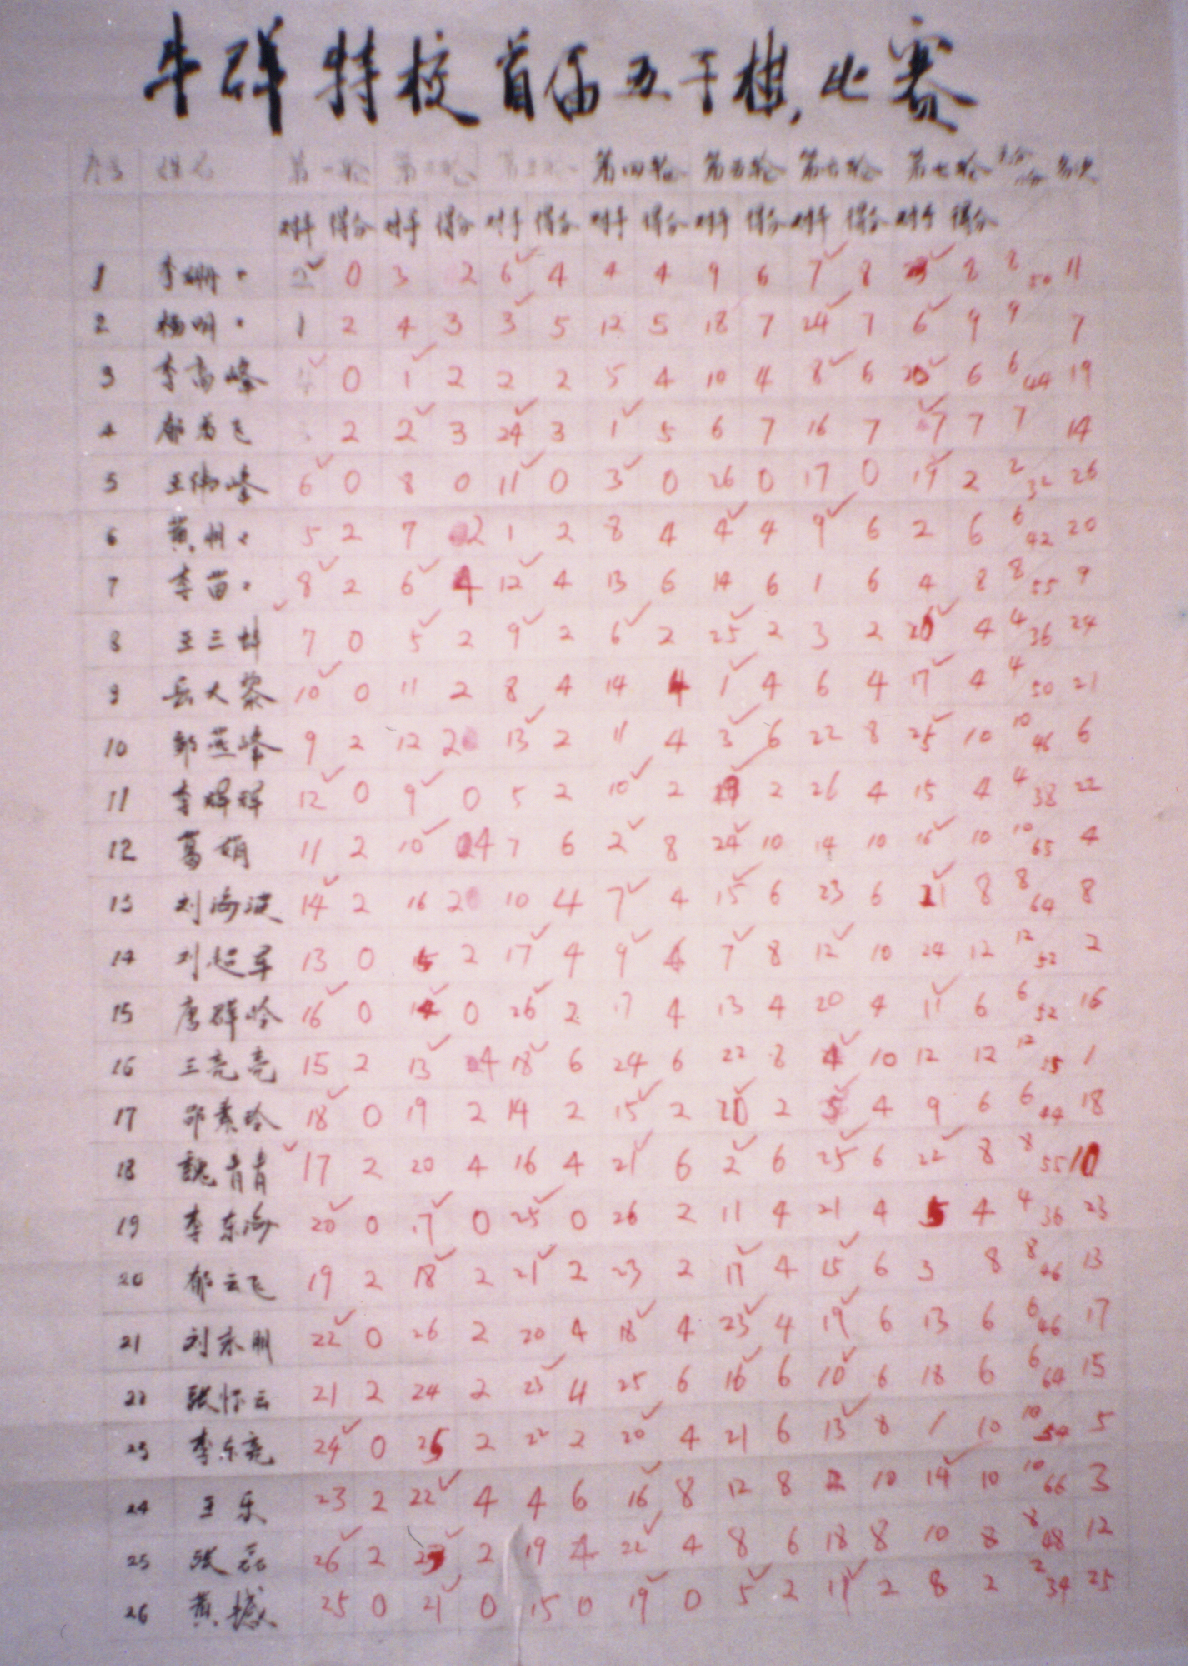 牛群特校首届五子棋比赛
序号 姓名 第一轮 第二轮 第三轮 第四轮 第五轮 第六轮 第七轮 名次
对手 得分 对手 得分 对手 得分 对手 得分 对手 得分 对手 得分 对手 得分
1 李姗 2 0 3 2 6 4 4 4 9 6 7 8 23 8 8 50 11
2 杨明 1 2 4 3 3 5 12 5 18 7 24 7 6 9 9 7
3 李高峰 4 0 1 2 2 2 5 4 10 4 8 6 20 6 6 44 19
4 郁为飞 3 2 2 3 24 3 1 5 6 7 16 7 7 7 7 14
5 王伟峰 6 0 8 0 11 0 3 0 26 0 17 0 19 2 2 32 26
6 黄州 5 2 7 2 1 2 8 4 4 4 9 6 2 6 6 42 20
7 李苗 8 2 6 4 12 4 13 6 14 6 1 6 4 8 8 55 9
8 王三 7 0 5 2 9 2 6 2 25 2 3 2 26 4 4 36 24
9 岳大 10 0 11 2 8 4 14 4 1 4 6 4 17 4 4 50 21
10 邹燕峰 9 2 12 2 13 2 11 4 3 6 22 8 25 10 10 46 6
11 李辉辉 12 0 9 0 5 2 10 2 19 2 26 4 15 4 4 38 22
12 葛娟 11 2 10 4 7 6 2 8 24 10 14 10 16 10 10 65 4
13 刘海波 14 2 16 2 10 4 7 4 15 6 23 6 21 8 8 64 8
14 刘超军 13 0 15 2 17 4 9 6 7 8 12 10 24 12 12 52 2
15 唐群 16 0 14 0 26 2 17 4 13 4 20 4 11 6 6 52 16
16 王亮亮 15 2 13 4 18 6 24 6 22 8 4 10 12 12 12 15 1
17 邵素玲 18 0 19 2 14 2 15 2 20 2 5 4 9 6 6 44 18
18 魏肖肖 17 2 20 4 16 4 21 6 2 6 25 6 22 8 8 55 10
19 李东海 20 0 17 0 25 0 26 2 11 4 21 4 5 4 4 36 23
20 郁云飞 19 2 18 2 21 2 23 2 17 4 15 6 3 8 8 46 13
21 刘永明 22 0 26 2 20 4 18 4 23 4 19 6 13 6 6 46 17
22 张怀云 21 2 24 2 23 4 25 6 16 6 10 6 18 6 6 64 15
23 李东亮 24 0 25 2 22 2 20 4 21 6 13 8 1 10 10 54 5
24 王乐 23 2 22 4 4 6 16 8 12 8 2 10 14 10 10 66 3
25 张磊 26 2 23 2 19 4 22 4 8 6 18 8 10 8 8 48 12
26 黄 25 0 21 0 15 0 19 0 5 2 11 2 8 2 2 34 25